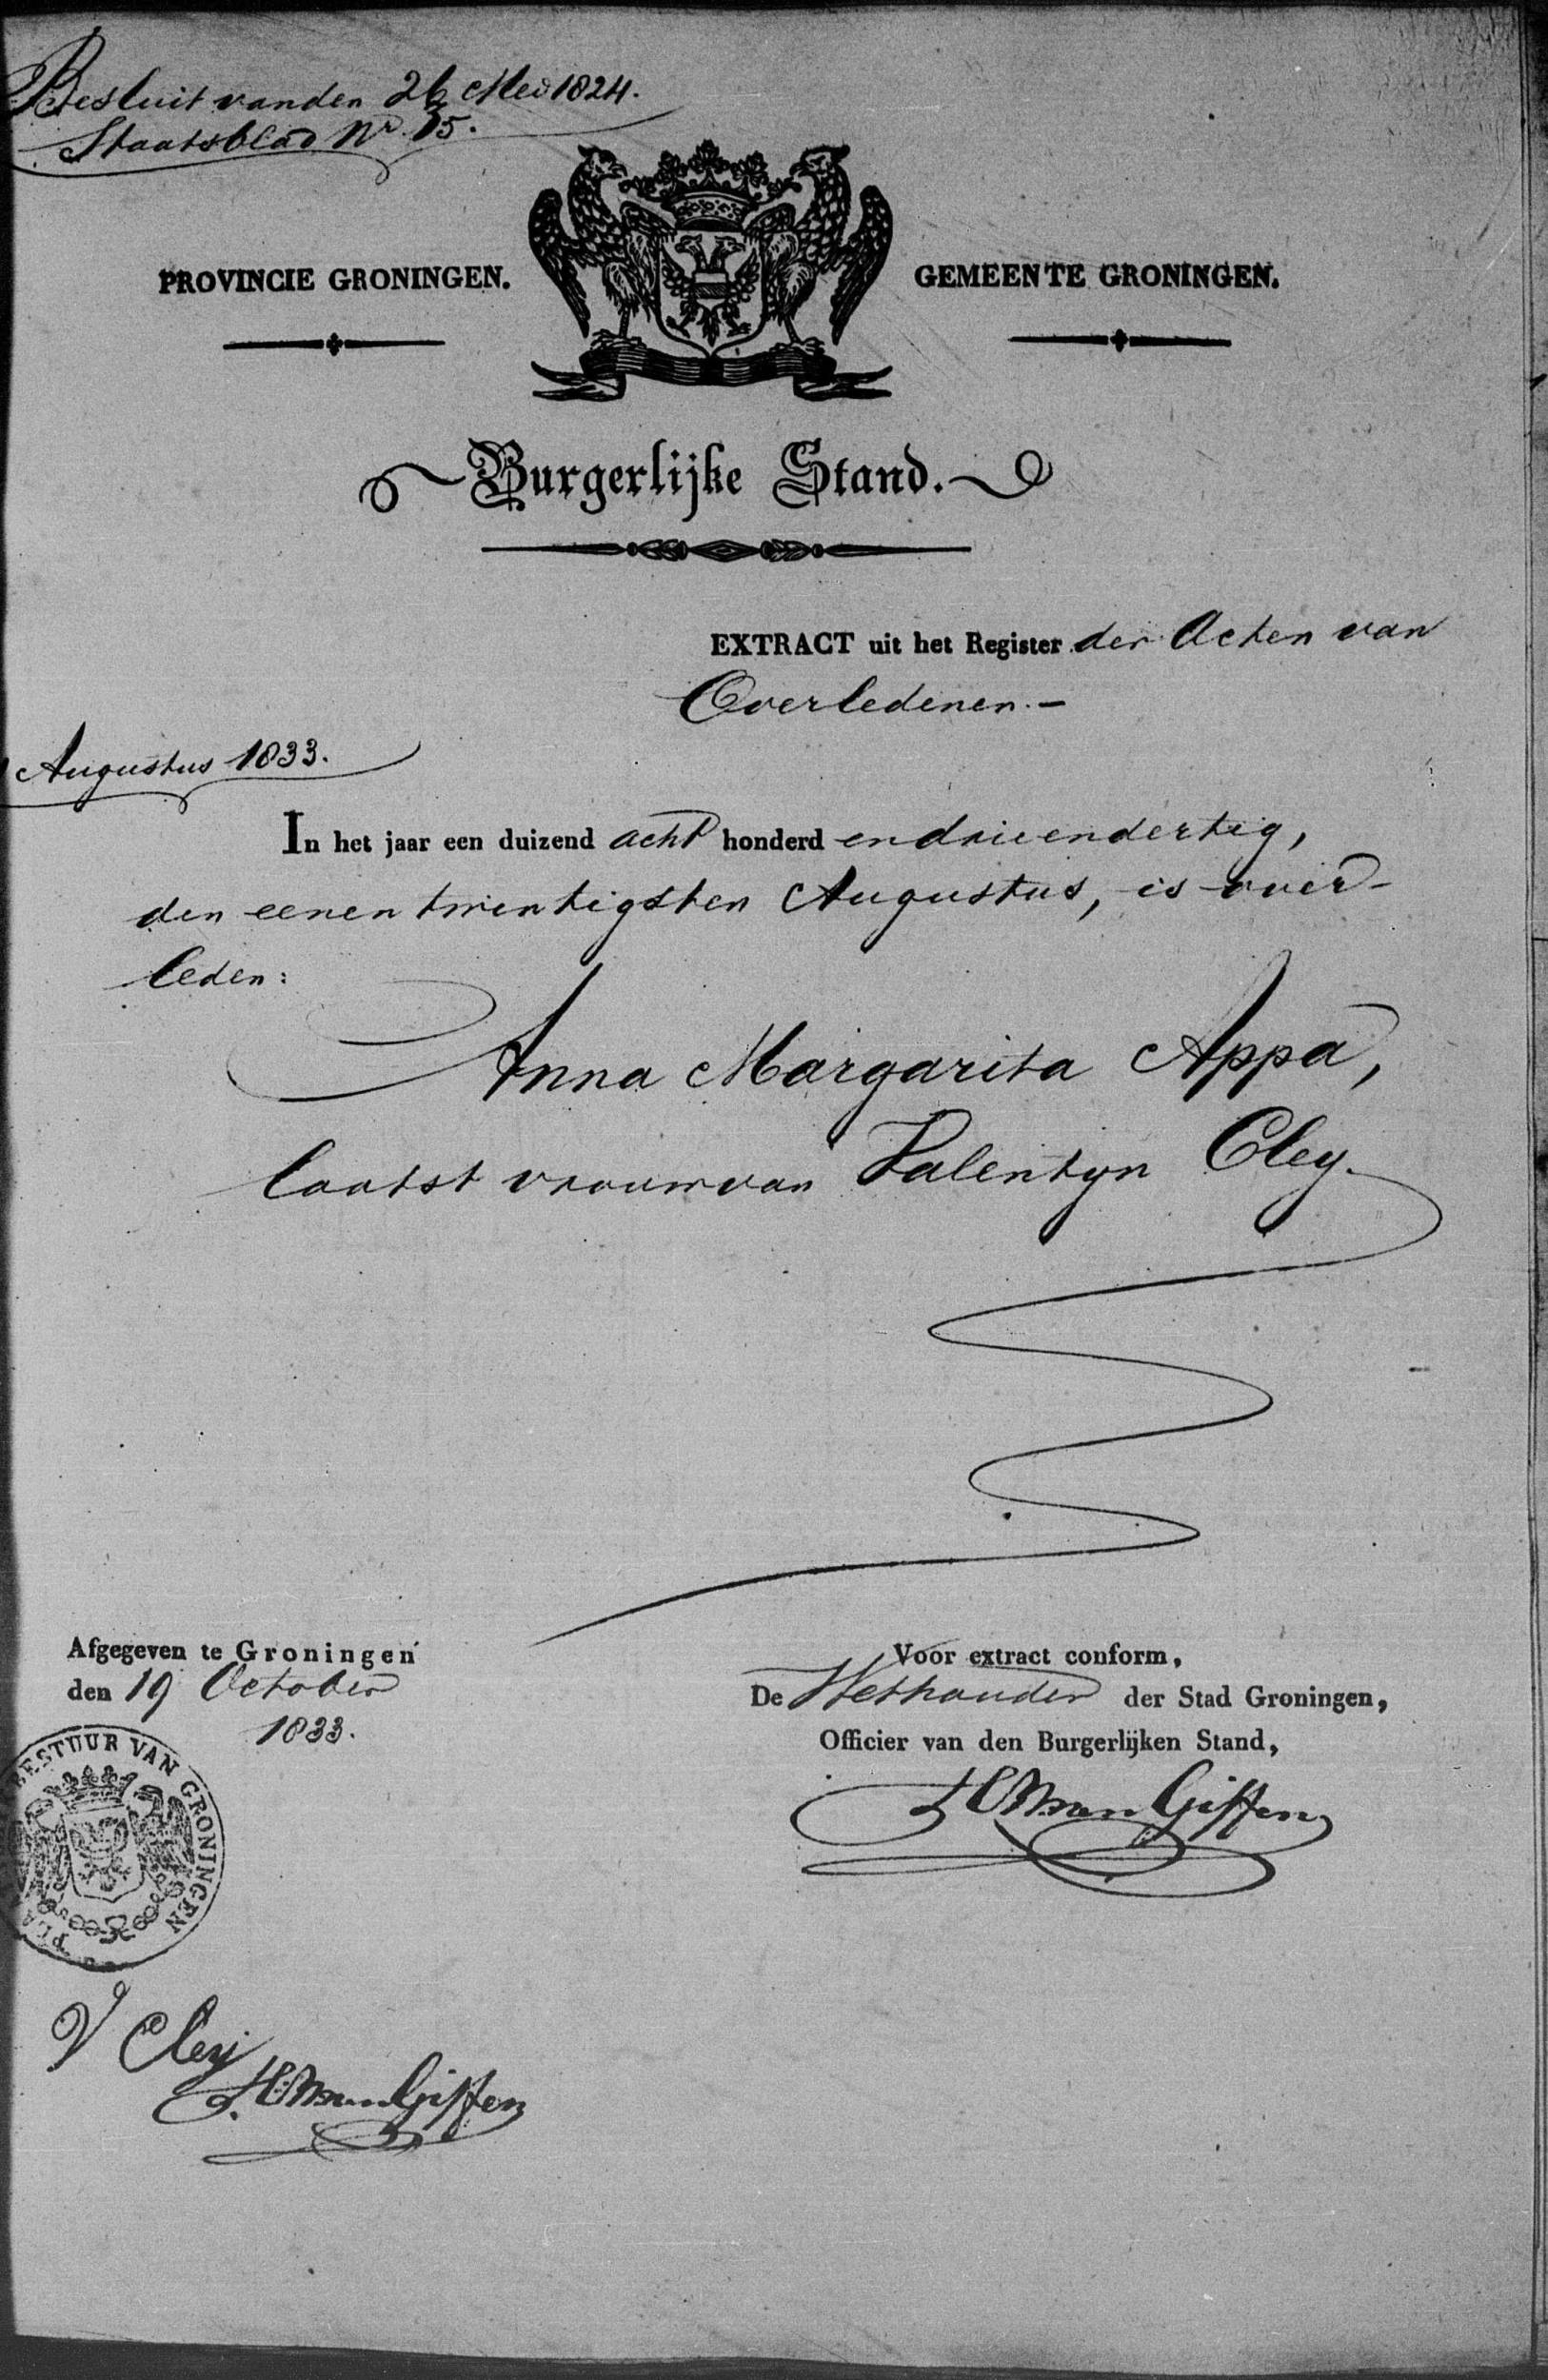 Besluit van den 26 Mei 1824.
Staatsblad Nr. 35.
PROVINCIE GRONINGEN.
GEMEENTE GRONINGEN.
Burgerlijke Stand.
EXTRACT uit het Register der Acten van
Overledenen. -
Augustus 1833.
In het jaar een duizend acht honderd en drieendertig,
den eenentwintigsten Augustus, is over-
leden:
Anna Margarita Appa,
laatst vrouw van Valentyn Cley.
Afgegeven te Groningen
den 19 October
1833.
Voor extract conform,
De Wethouder der Stad Groningen,
Officier van den Burgerlijken Stand,
van Giffen
BESTUUR VAN GRONINGEN
V Cley
van Giffen